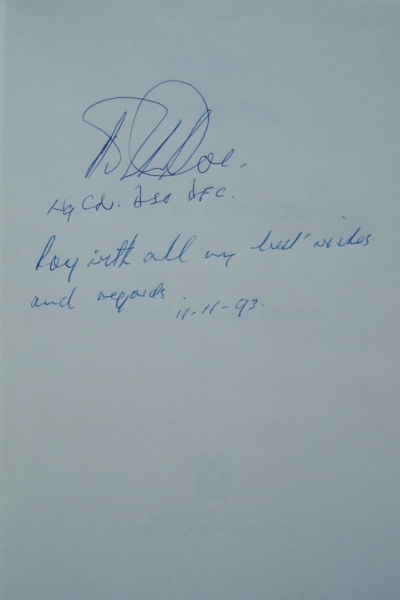 Doe.
Wg Cdr. DSO DFC.
Roy with all my best wishes
and regards
11-11-93.